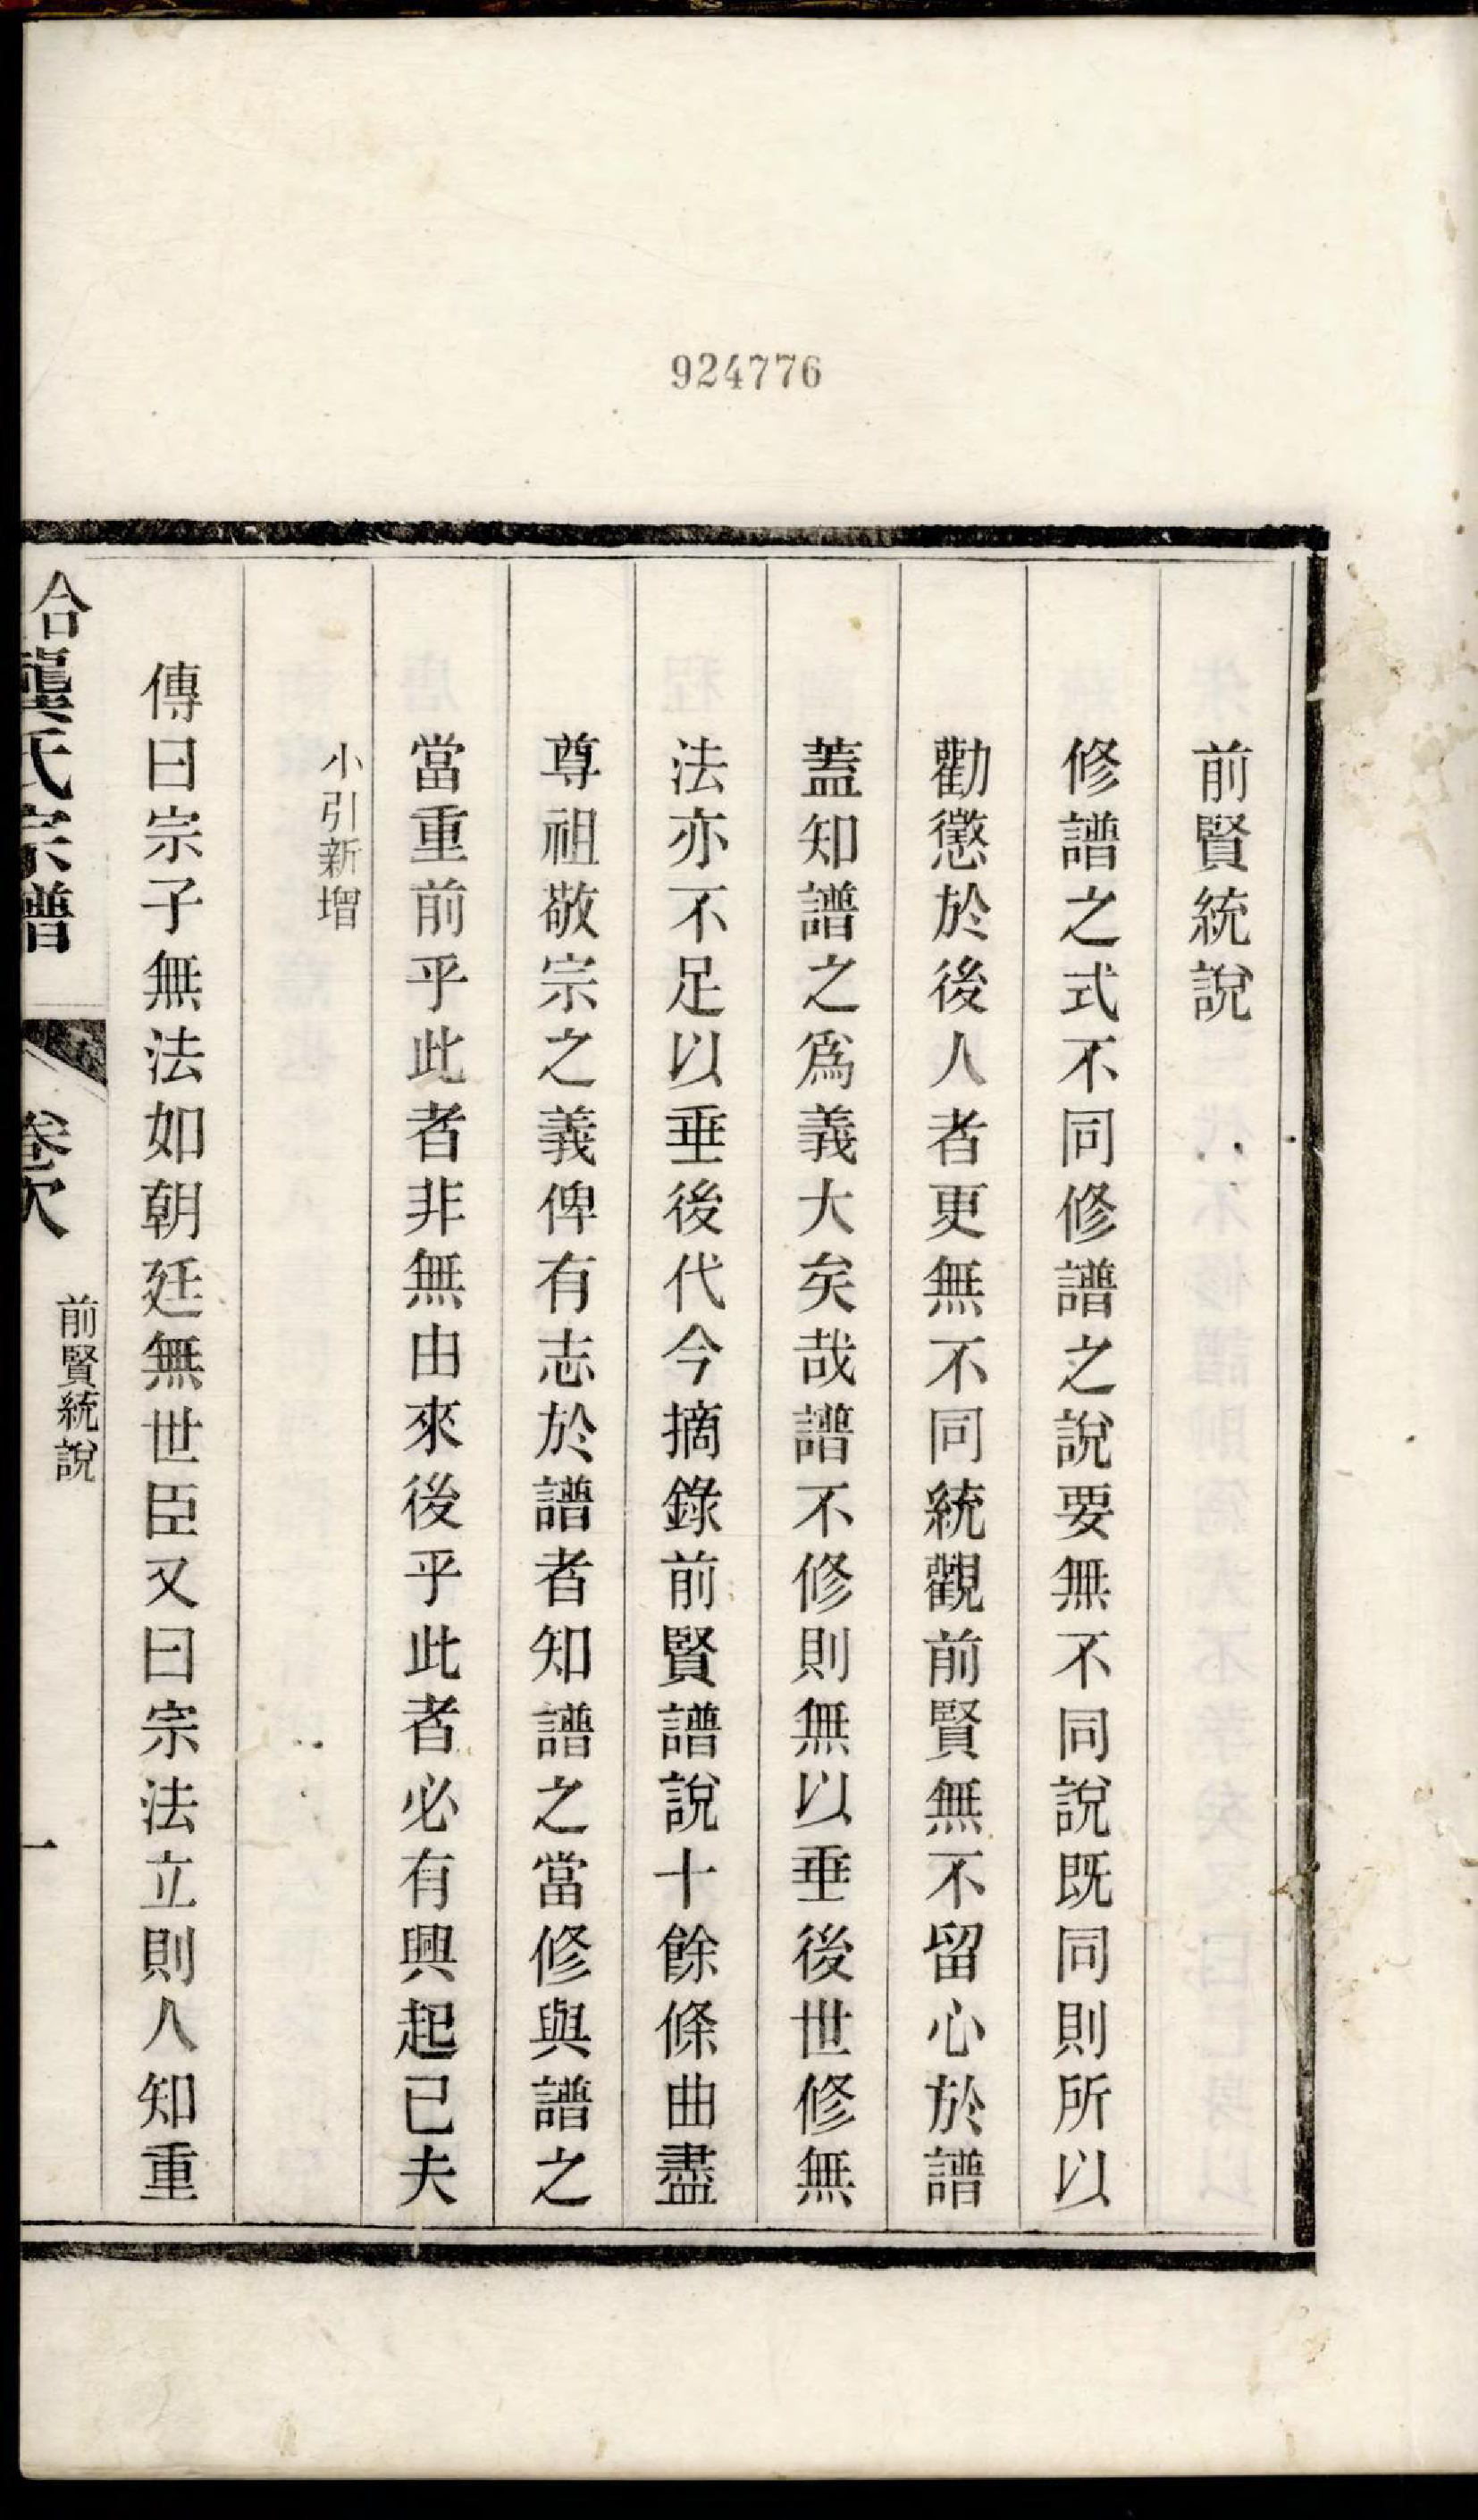 924776
前賢統說
修譜之式不同修譜之說要無不同說既同則所以
勸懲於後人者更無不同統觀前賢無不留心於譜
蓋知譜之爲義大矣哉譜不修則無以垂後世修無
法亦不足以垂後代今摘錄前賢譜說十餘條曲盡
尊祖敬宗之義俾有志於譜者知譜之當修與譜之
當重前乎此者非無由來後乎此者必有興起已夫
小引新增
傳曰宗子無法如朝廷無世臣又曰宗法立則人知重
合龔氏宗譜
卷次
前賢統說
一